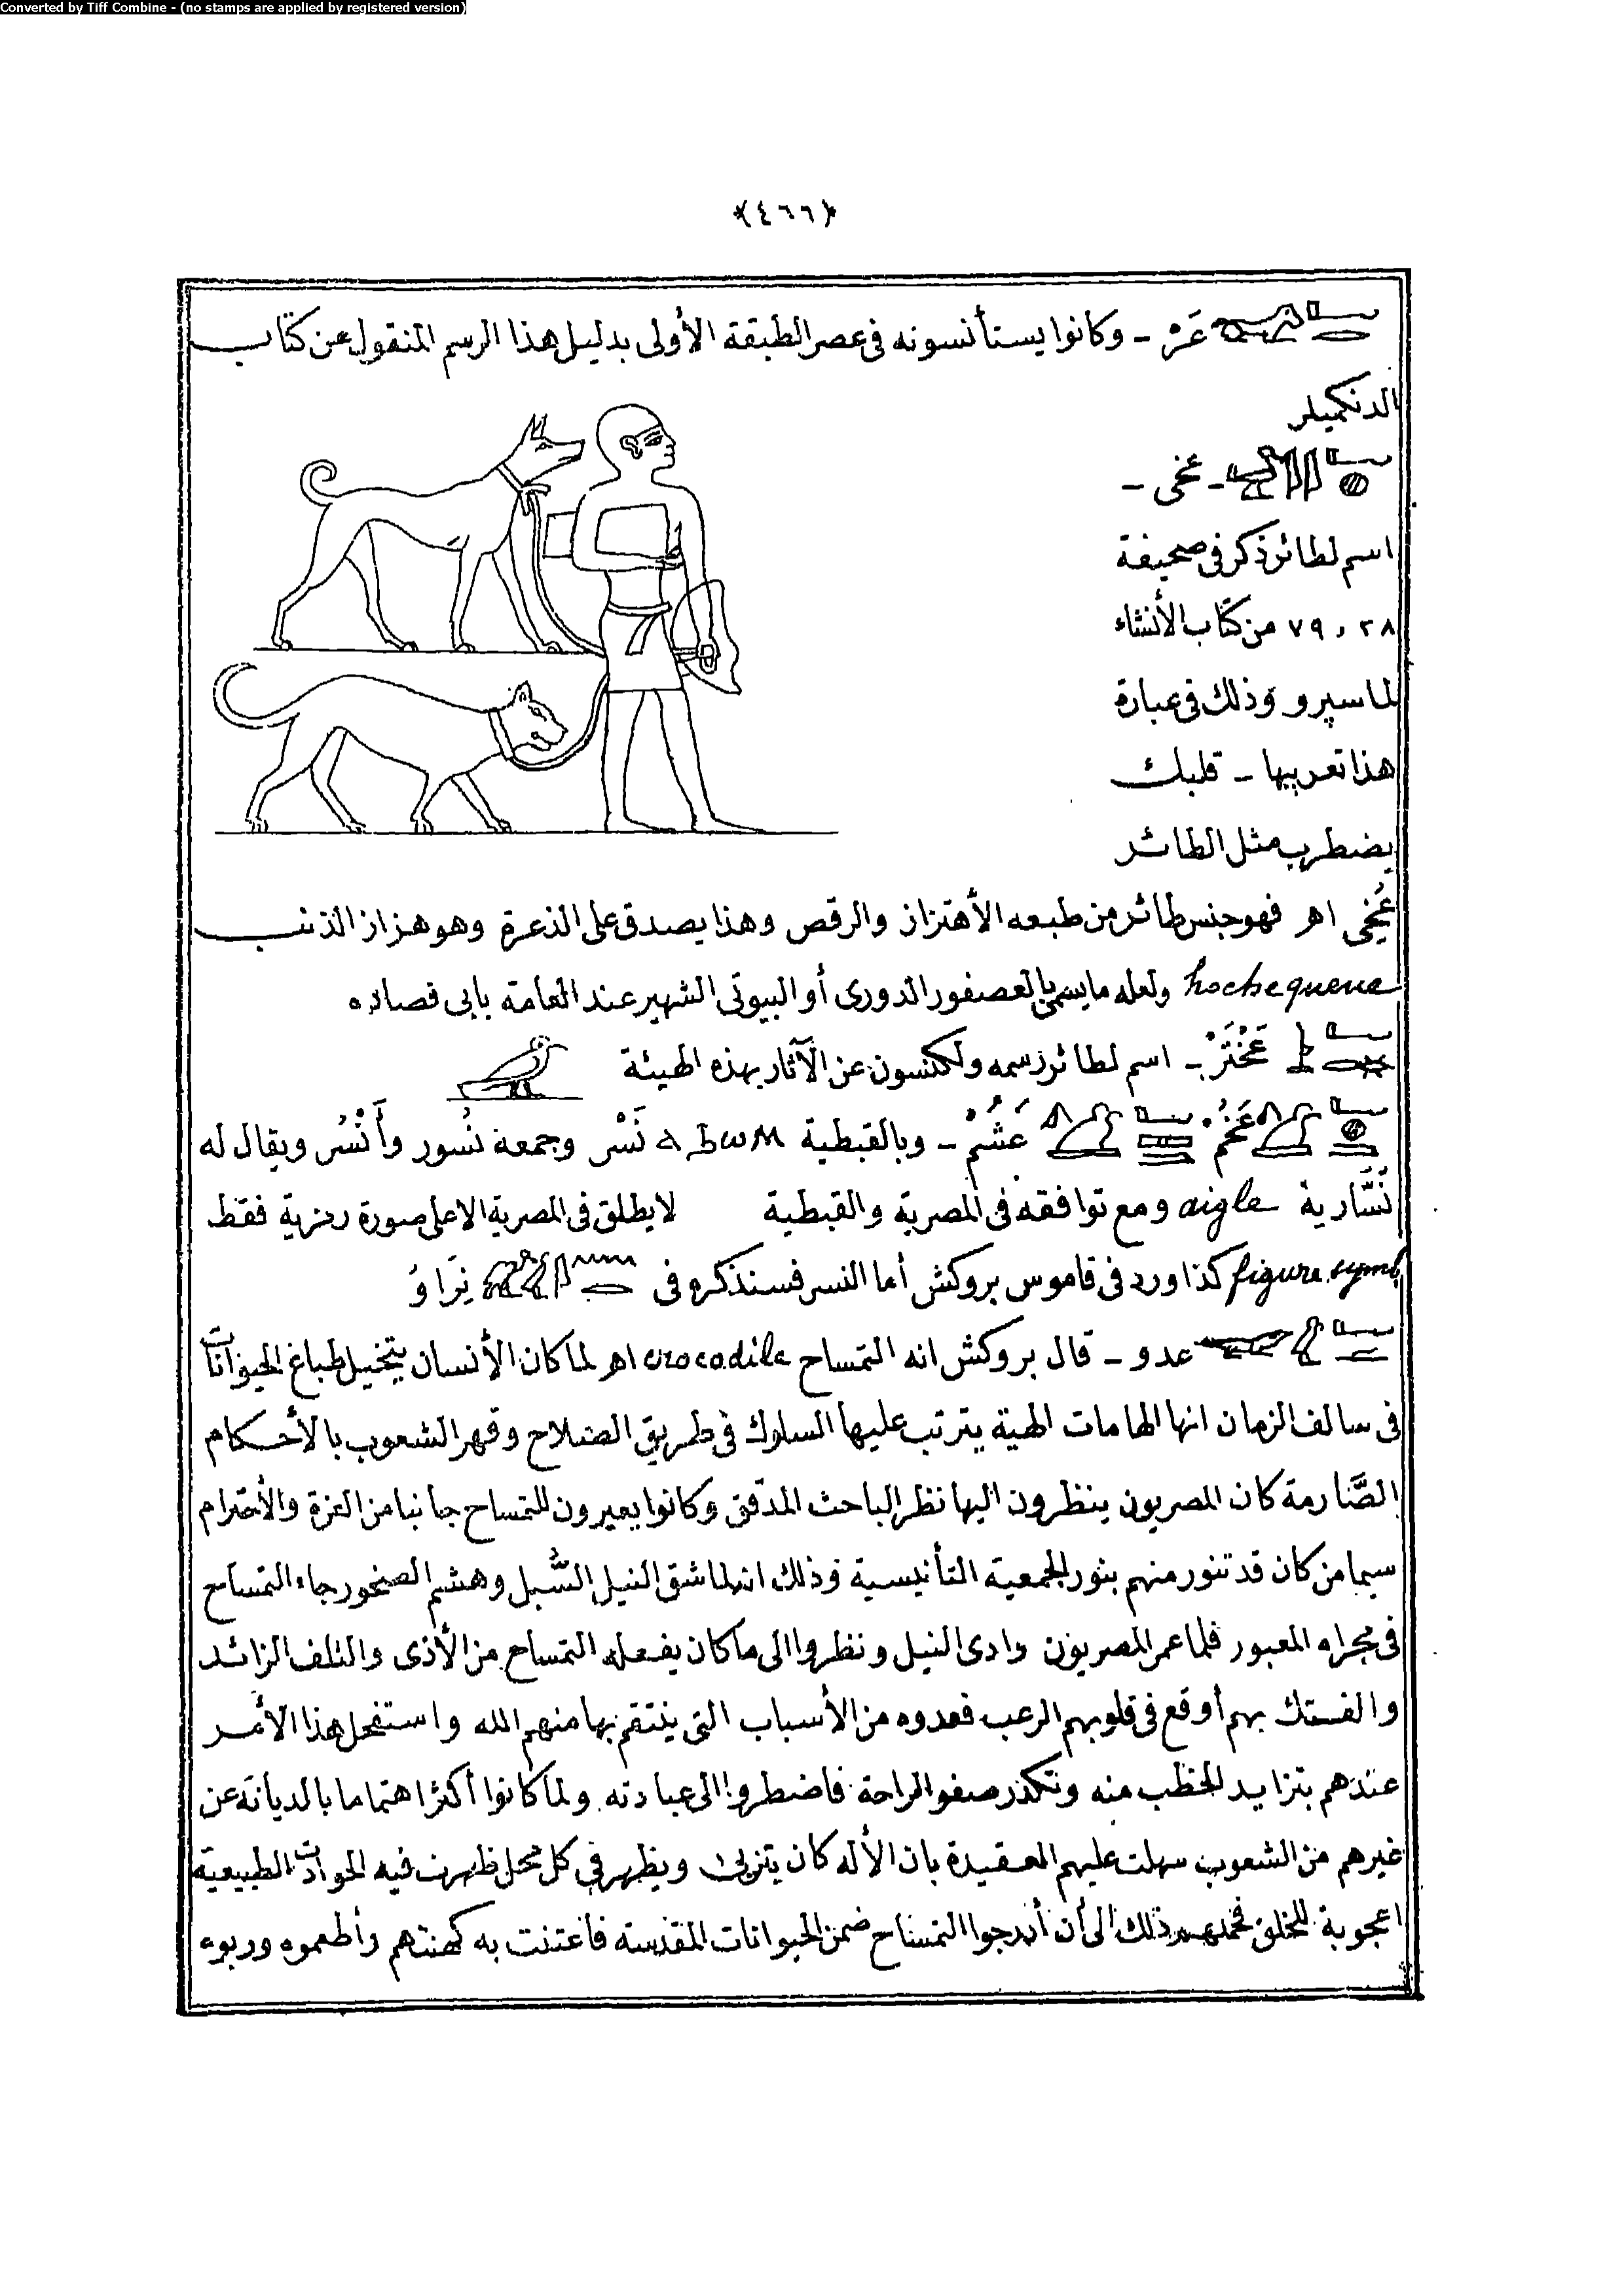 Converted by Tiff Combine - (no stamps are applied by registered version)
﴿٤٦٦﴾
عَرْ - وكانوا يستأنسونه فى عصر الطبقة الأولى بدليل هذا الرسم المنقول عن كتاب
الدنكميلر
عخى -
اسم لطائر ذكر فى صحيفة
٢٨ ، ٧٩ من كتاب الأنشاء
لماسپرو وذلك فى عبارة
هذا تعريبها - قلبك
يضطرب مثل الطائر
عُخِى اهر فهو جنس طائر من طبعه الأهتزاز والرقص وهذا يصدق على الذعرة وهو هزاز الذنب
hochequeue ولعله ما يسمى بالعصفور الدورى أو البيوتى الشهير عند العامة بابى فصاده
عَخْتَرْ - اسم لطائر رسمه ولكنسون عن الآثار بهذه الهيئة
عَخُمْ عَشُمْ - وبالقبطية نَسْر وجمعه نُسور وأَنْسُر ويقال له
نَسَّارية aigle ومع توافقه فى المصرية والقبطية لا يطلق فى المصرية الا على صورة رمزية فقط
figure symb كذا ورد فى قاموس بروكش أما النسر فسنذكره فى نِرَاوُ
عدو - قال بروكش انه التمساح crocodile اهر لما كان الأنسان يتخيل طباع الحيوانات
فى سالف الزمان انها الهامات الهية يترتب عليها السلوك فى طريق الصلاح وقهر الشعوب بالأحكام
الصَّارمة كان المصريون ينظرون اليها نظر الباحث المدقق وكانوا يعيرون للتمساح جانبا من العزة والأحترام
سيما من كان قد تنور منهم بنور الجمعية التأنيسية وذلك انه لما شق النيل السُّبل وهشم الصخور جاء التمساح
فى مجراه المعبور فلما عمر المصريون وادى النيل ونظروا الى ما كان يفعله التمساح من الأذى والتلف الزائد
والفتك بهم أوقع فى قلوبهم الرعب فعدوه من الأسباب التى ينتقم بها منهم الله واستفحل هذا الأمر
عندهم بتزايد الخطب منه وتكدر صفو الراحة فاضطروا الى عبادته ولما كانوا أكثر اهتماما بالديانة عن
غيرهم من الشعوب سهلت عليهم العقيدة بان الأله كان يتزيئ ويظهر فى كل محل ظهرت فيه الحوادث الطبيعية
اعجوبة للخلق ذلك الى أن أدرجوا التمساح ضمن الحيوانات المقدسة فاعتنت به كهنتهم وأطعموه وربوه